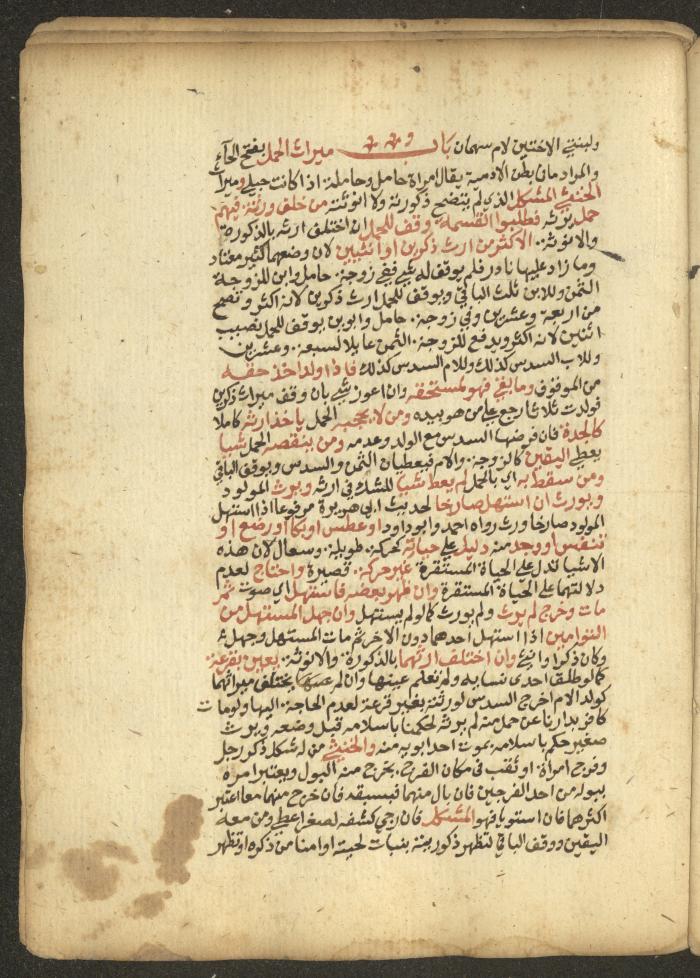 ولبنتي الاختين لام سهمان باب ميراث الحمل بفتح الحاء
والمراد ما في بطن الادمية يقال امراة حامل وحاملة اذا كانت حبلى وميراث
الخنثى المشكل الذي لم يتضح ذكورته ولا انوثته من خلف ورثة فيهم
حمل يرثه فطلبوا القسمة وقف للحمل ان اختلف ارثه بالذكورة
والانوثة الاكثر من ارث ذكرين او انثيين لان وضعهما كثير معتاد
وما زاد عليهما نادر فلم يوقف له شي ففي زوجة حامل وابن للزوجة
الثمن وللابن ثلث الباقي ويوقف للحمل ارث ذكرين لانه اكثر وتصح
من اربعة وعشرين وفي زوجة حامل وابوين يوقف للحمل نصيب
اثنتين لانه اكثر ويدفع للزوجة الثمن عايلا لسبعة وعشرين
وللاب السدس كذلك وللام السدس كذلك فاذا ولد اخذ حقه
من الموقوف وما بقي فهو لمستحقه وان اعوز شي بان وقف ميراث ذكرين
فولدت ثلاثا رجع على من هو بيده ومن لا يحجبه الحمل ياخذ ارثه كاملا
كالجدة فان فرضها السدس مع الولد وعدمه ومن ينقصه الحمل شيا
يعطى اليقين كالزوجة والام فيعطيان الثمن والسدس ويوقف الباقي
ومن سقط به اي بالحمل لم يعط شيا للشك في ارثه ويرث المولود
ويورث ان استهل صارخا لحديث ابي هريرة مرفوعا اذا استهل
المولود صارخا ورث رواه احمد وابو داود او عطس او بكا او رضع او
تنفس او وجد منه دليل على حياته كحركة طويلة وسعال لان هذه
الاشيا تدل على الحياة المستقرة غير حركة قصيرة واختلاج لعدم
دلالتهما على الحياة المستقرة وان ظهر بعضه فاستهل اي صوت ثم
مات وخرج لم يرث ولم يورث كما لو لم يستهل وان جهل المستهل من
التوامين اذا استهل احدهما دون الاخر ثم مات المستهل وجهل
وكان ذكرا وانثى وان اختلف ارثهما بالذكورة والانوثة يعين بقرعة
كما لو طلق احدى نسايه ولم تعلم عينها وان لم يختلف ميراثهما
كولد الام اخرج السدس لورثته بغير قرعة لعدم الحاجة اليها ولو مات
كافر بدارنا عن حمل منه لم يرثه لحكمنا باسلامه قبل وضعه ويرث
صغير حكم باسلامه بموت احد ابويه منه والخنثى من له شكل ذكر رجل
وفرج امراة او ثقب في مكان الفرج يخرج منه البول ويعتبر امره
ببوله من احد الفرجين فان بال منهما فبسبقه فان خرج منهما معا اعتبر
اكثرهما فان استويا فهو المشكل فان رجي كشفه لصغر اعطي ومن معه
اليقين ووقف الباقي لتظهر ذكورته بنبات لحيته او امنا من ذكره او تظهر